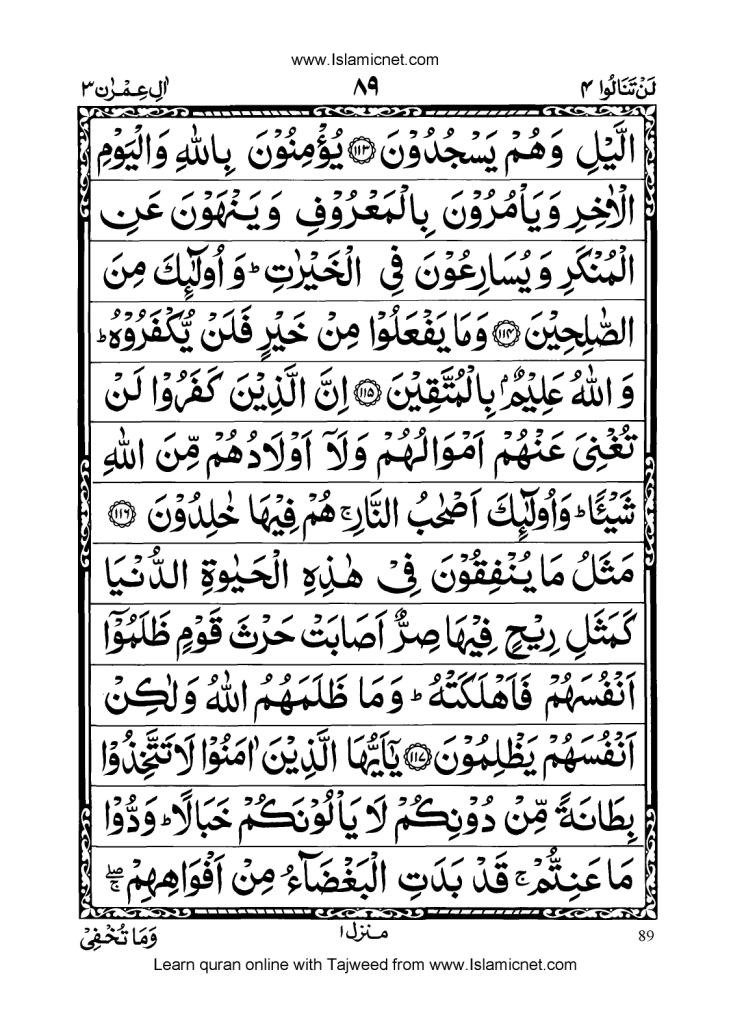 www.Islamicnet.com
لَنۡ تَنَالُوا ۴ ۸۹ اٰلِ عِمۡرٰن ۳
الَّيۡلِ وَهُمۡ يَسۡجُدُوۡنَ ﴿۱۱۳﴾ يُؤۡمِنُوۡنَ بِاللّٰهِ وَالۡيَوۡمِ
الۡاٰخِرِ وَيَاۡمُرُوۡنَ بِالۡمَعۡرُوۡفِ وَيَنۡهَوۡنَ عَنِ
الۡمُنۡكَرِ وَيُسَارِعُوۡنَ فِى الۡخَيۡرٰتِؕ وَاُولٰٓٮِٕكَ مِنَ
الصّٰلِحِيۡنَ ﴿۱۱۴﴾ وَمَا يَفۡعَلُوۡا مِنۡ خَيۡرٍ فَلَنۡ يُّكۡفَرُوۡهُؕ
وَاللّٰهُ عَلِيۡمٌۢ بِالۡمُتَّقِيۡنَ ﴿۱۱۵﴾ اِنَّ الَّذِيۡنَ كَفَرُوۡا لَنۡ
تُغۡنِىَ عَنۡهُمۡ اَمۡوَالُهُمۡ وَلَاۤ اَوۡلَادُهُمۡ مِّنَ اللّٰهِ
شَيۡــًٔاؕ وَاُولٰٓٮِٕكَ اَصۡحٰبُ النَّارِۚ هُمۡ فِيۡهَا خٰلِدُوۡنَ ﴿۱۱۶﴾
مَثَلُ مَا يُنۡفِقُوۡنَ فِىۡ هٰذِهِ الۡحَيٰوةِ الدُّنۡيَا
كَمَثَلِ رِيۡحٍ فِيۡهَا صِرٌّ اَصَابَتۡ حَرۡثَ قَوۡمٍ ظَلَمُوۡۤا
اَنۡفُسَهُمۡ فَاَهۡلَكَتۡهُؕ وَمَا ظَلَمَهُمُ اللّٰهُ وَلٰكِنۡ
اَنۡفُسَهُمۡ يَظۡلِمُوۡنَ ﴿۱۱۷﴾ يٰۤاَيُّهَا الَّذِيۡنَ اٰمَنُوۡا لَا تَتَّخِذُوۡا
بِطَانَةً مِّنۡ دُوۡنِكُمۡ لَا يَاۡلُوۡنَكُمۡ خَبَالًاؕ وَدُّوۡا
مَا عَنِتُّمۡۚ قَدۡ بَدَتِ الۡبَغۡضَآءُ مِنۡ اَفۡوَاهِهِمۡۖۚ
89 منزل ۱ وَمَا تُخۡفِىۡ
Learn quran online with Tajweed from www.Islamicnet.com